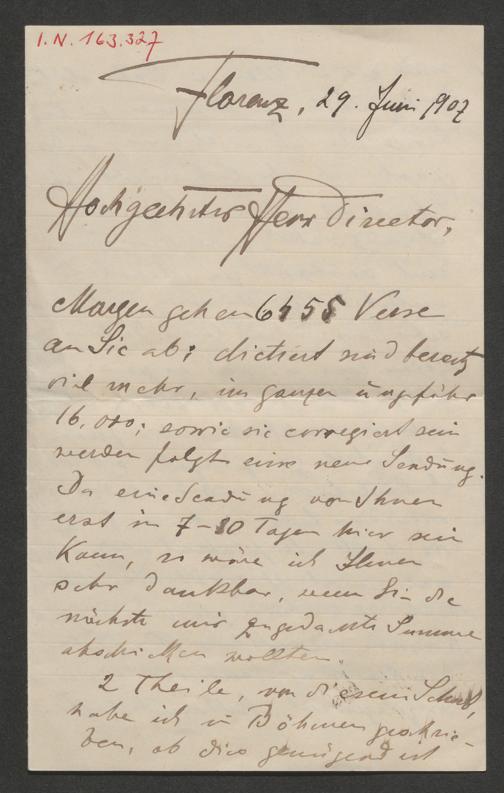 I.N. 163.327
Florenz, 29. Juni 1907
Hochgeehrter Herr Director,
Morgen gehen 6455 Verse
an Sie ab; dictiert sind bereits
viel mehr, im ganzen ungefähr
16.000; sowie sie corregiert sein
werden folgt eine neue Sendung.
Da eine Sendung von Ihnen
erst in 7-10 Tagen hier sein
kann, so wäre ich Ihnen
sehr dankbar, wenn Sie die
nächste mir zugedachte Summe
abschicken wollten.
2 Theile, von diesem
habe ich in Böhmen geschrie-
ben, ob dies genügend ist